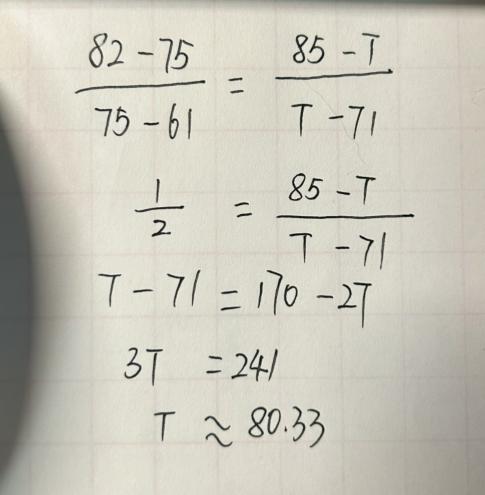 82 - 75 / 75 - 61 = 85 - T / T - 71
1 / 2 = 85 - T / T - 71
T - 71 = 170 - 2T
3T = 241
T ≈ 80.33